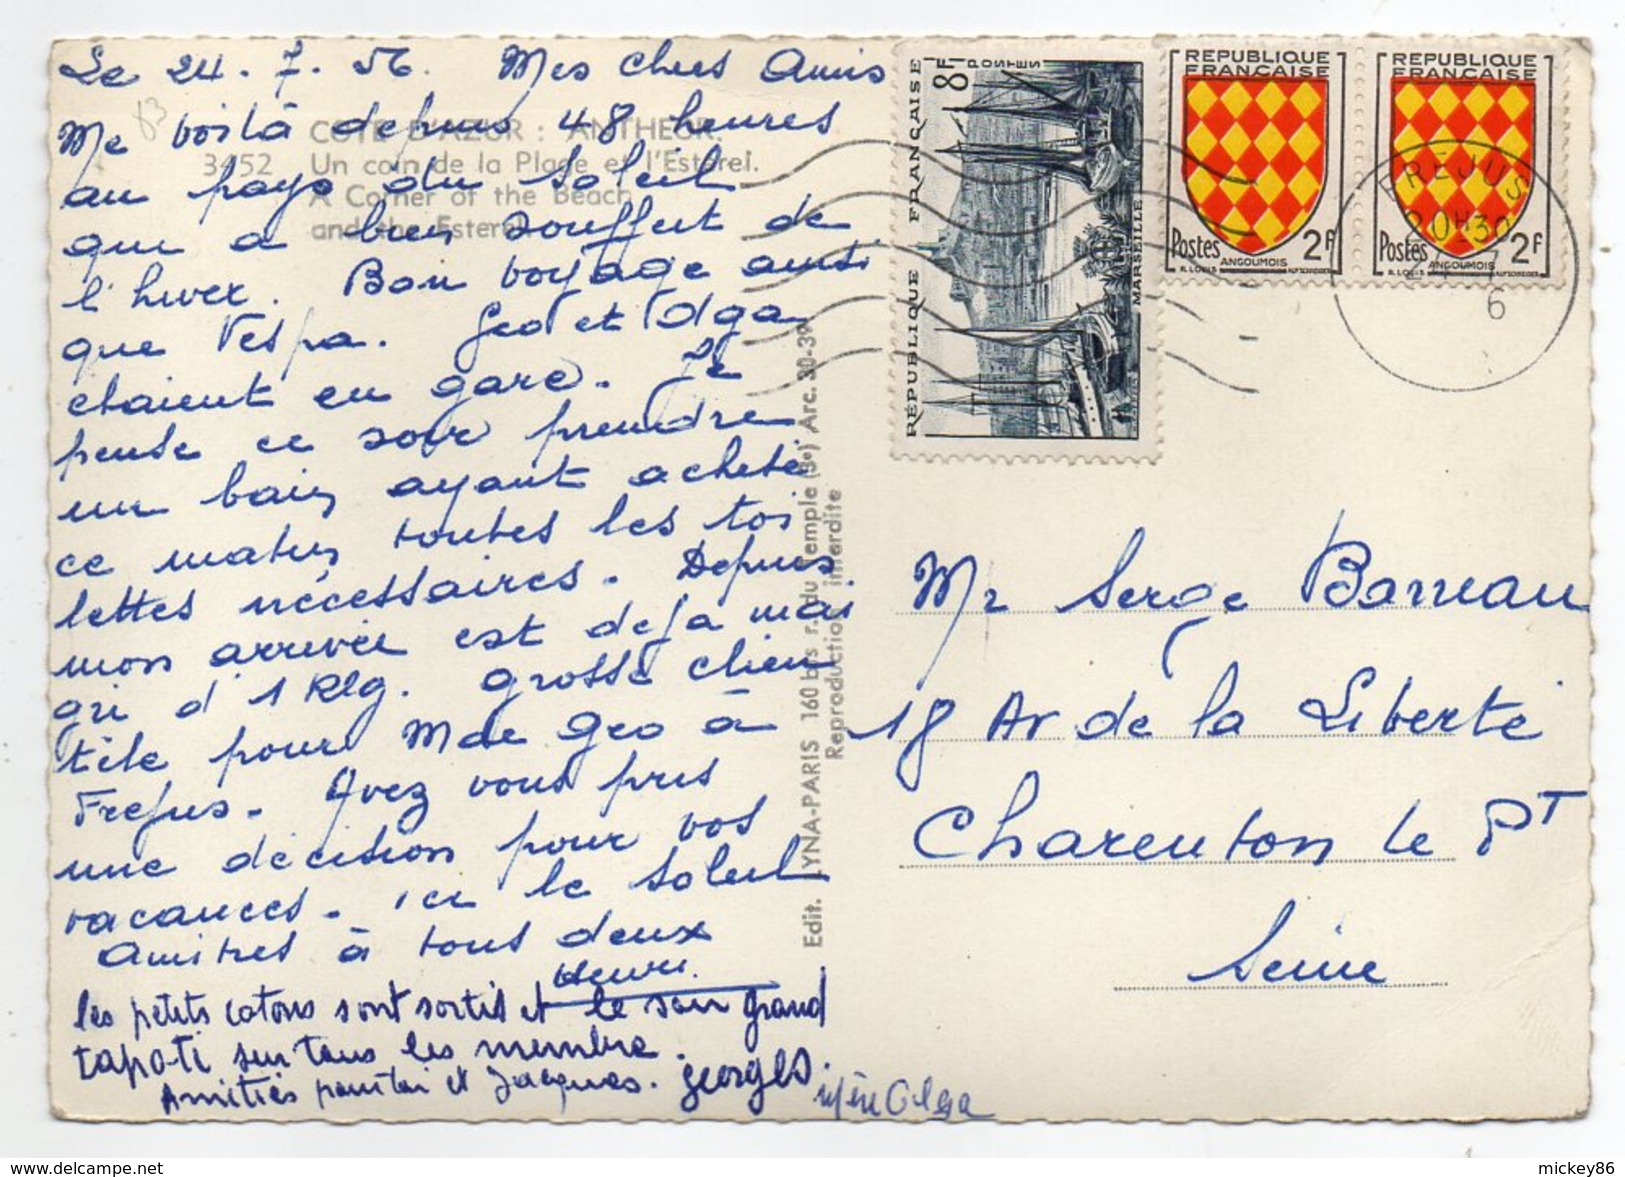 Le 24.7.56. Mes chers Amis
Me voilà depuis 48 heures
au pays du soleil
qui a bien souffert de
l'hiver. Bon voyage ainsi
que Vespa. Geo et Olga
etaient en gare. Je
pense ce soir prendre
un bain ayant acheté
ce matin toutes les toi
lettes nécessaires. Depuis
mon arrivée est deja mai
gri d'1 Klg. grosse clien
tèle pour Mme Geo à
Frejus. Avez vous pris
une décision pour vos
vacances. ici le soleil
Amitiés à tous deux
Henri.
les petits cotons sont sortis et le soir grand
tapoti sur tous les membre.
Amitiés pour toi et Jacques. georges.
Olga
COTE D'AZUR : ANTHEOR.
3452 Un coin de la Plage et l'Esterel.
A Corner of the Beach
and the Esterel
Edit. YNA-PARIS 160 bis r. du Temple (3e) Arc. 30-39
Reproduction interdite
RÉPUBLIQUE FRANÇAISE
8F
POSTES
MARSEILLE
REPUBLIQUE
FRANÇAISE
Postes 2F
ANGOUMOIS
R. LOUIS
REPUBLIQUE
FRANÇAISE
Postes 2F
ANGOUMOIS
R. LOUIS
FREJUS
20H30
6
Mr Serge Barreau
18 Av de la Liberté
Charenton le PT
Seine
mickey86